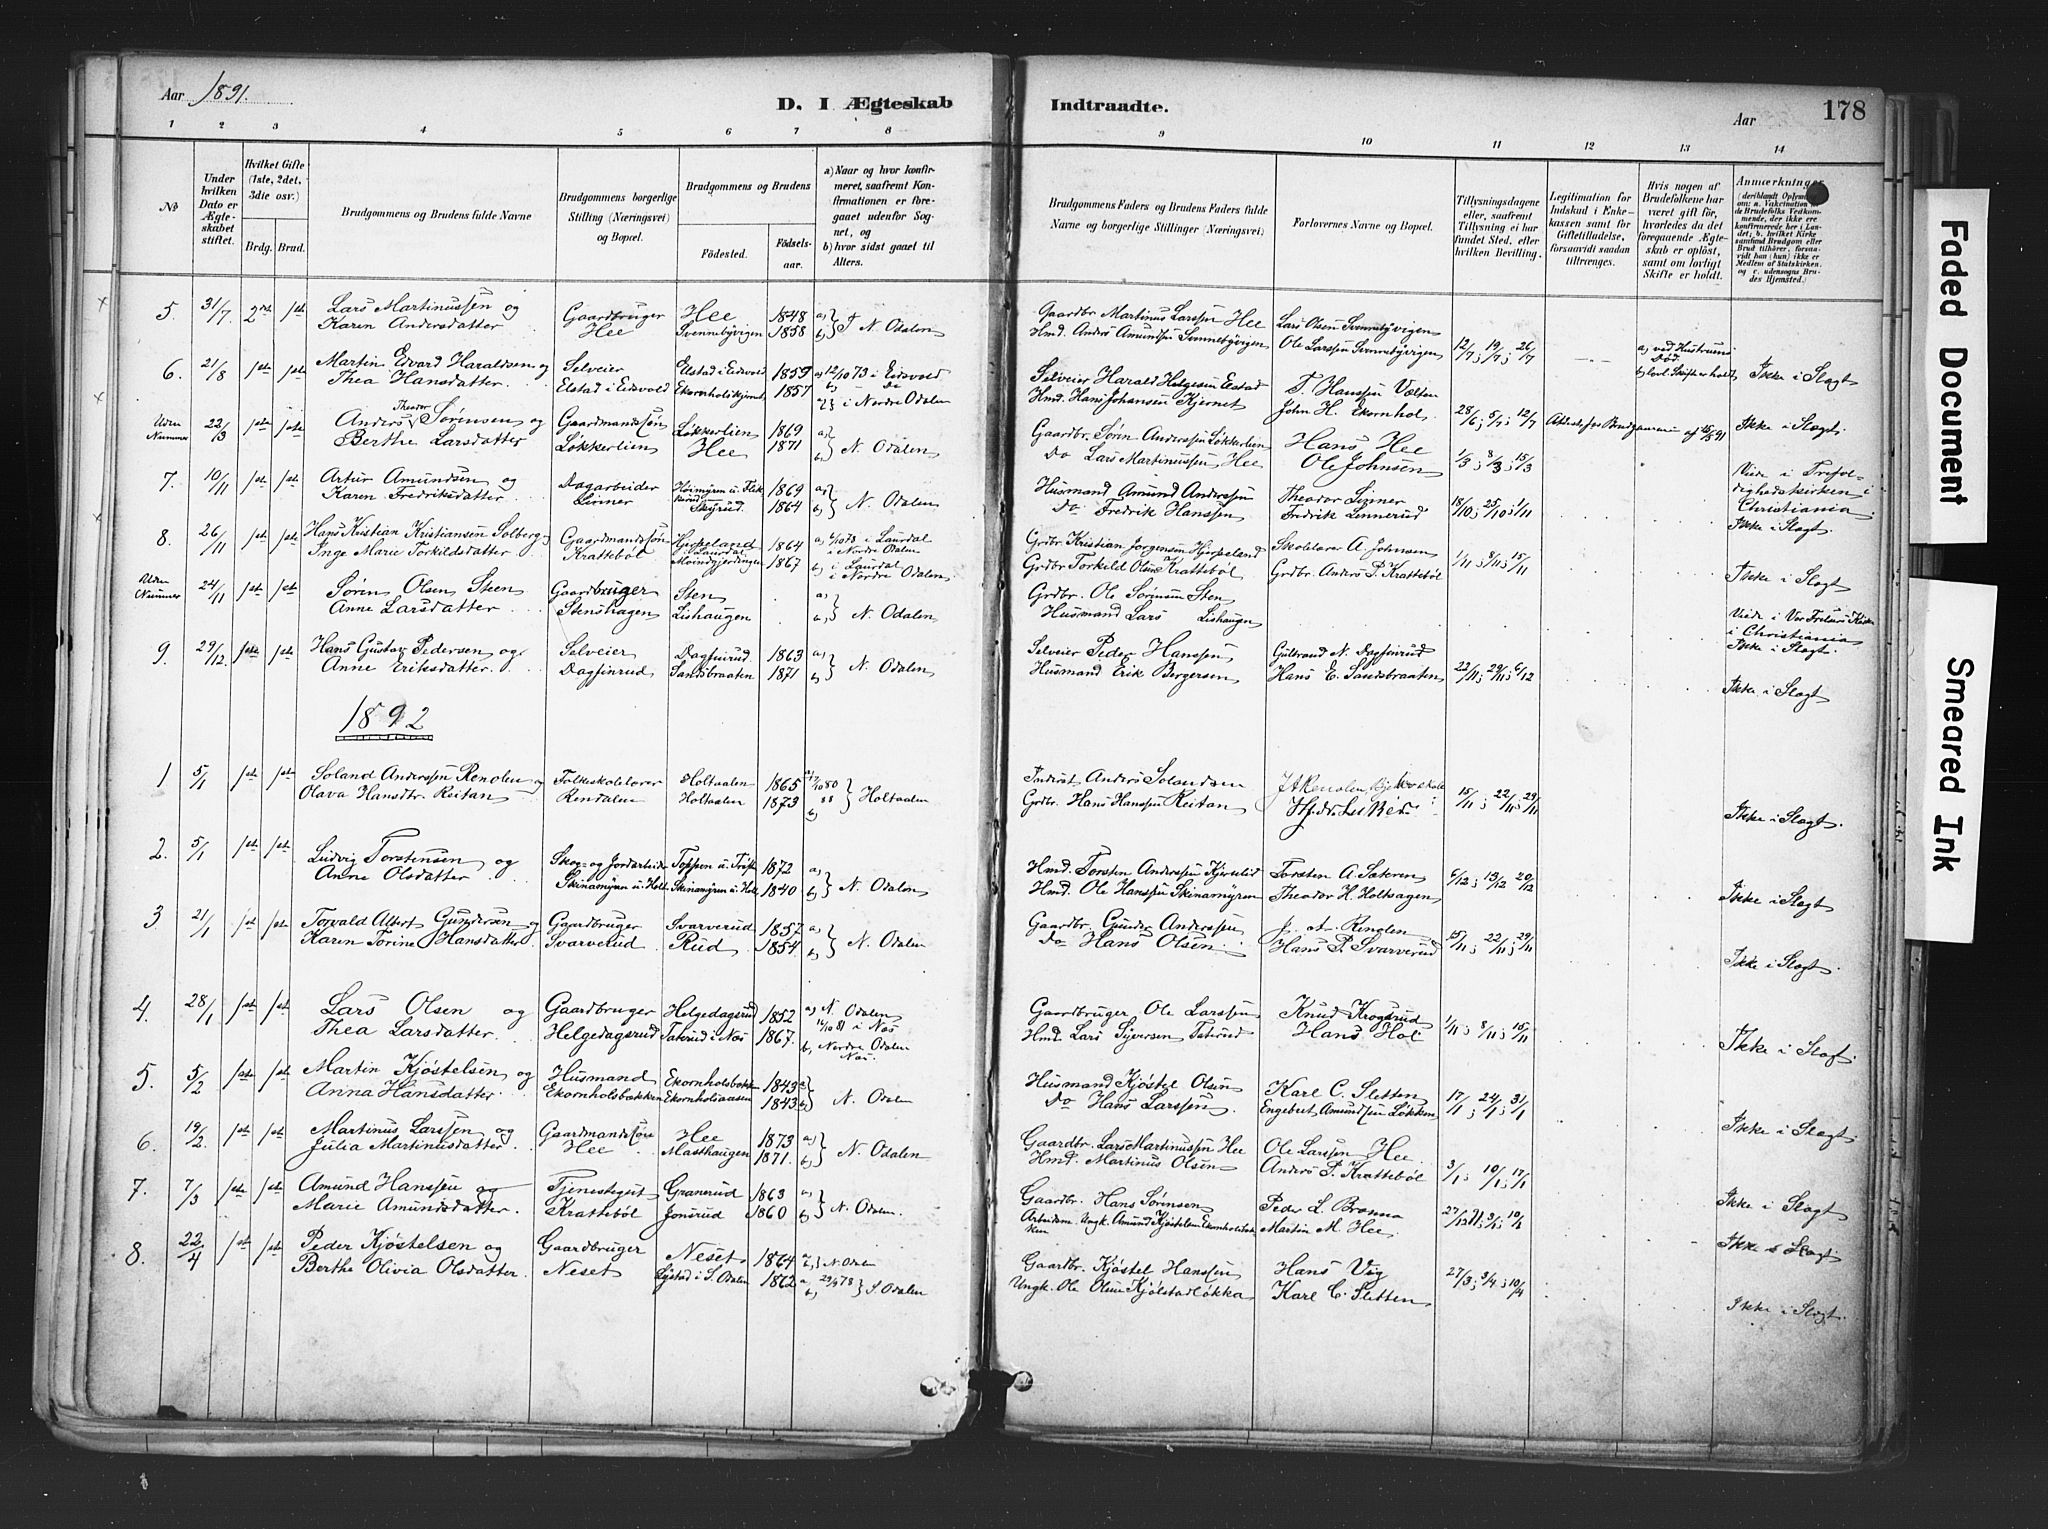 Aar 1891.
D. I Ægteskab Indtraadte.
Aar
178
1 2 3 4 5 6 7 8 9 10 11 12 13 14
No
Under hvilken Dato er Ægteskabet stiftet.
Hvilket Gifte (1ste, 2det, 3die osv.)
Brdg. Brud.
Brudgommens og Brudens fulde Navne
Brudgommens borgerlige Stilling (Næringsvei) og Bopæl.
Brudgommens og Brudens
Fødested. Fødselsaar.
a) Naar og hvor konfirmeret, saafremt Konfirmationen er foregaaet udenfor Sognet, og
b) hvor sidst gaaet til Alters.
Brudgommens Faders og Brudens Faders fulde Navne og borgerlige Stillinger (Næringsvei)
Forlovernes Navne og Bopæl.
Tillysningsdagene eller, saafremt Tillysning ei har fundet Sted, efter hvilken Bevilling.
Legitimation for Indskud i Enkekassen samt for Giftetilladelse, forsaavidt saadan tiltrænges.
Hvis nogen af Brudefolkene har været gift før, hvorledes da det foregaaende Ægteskab er opløst, samt om lovligt Skifte er holdt.
Anmærkninger
5 31/7 2det 1ste Lars Martinussen og Gaardbruger Hee 1848 a) Gaardbr Martinus Larssen Hee Lars Olsen Svennebyvigen
Karen Andersdatter Hee Svennebyvigen 1858 b) N. Odalen Hmd. Anders Amundsen Svennebyvigen Ole Larssen Svennebyvigen 12/7; 19/7; 26/7 a) ved Hustruens Død. b) lovl. Skifte er holdt Ikke i Slægt
6. 21/8 1ste 1ste Martin Edvard Haraldsen og Selveier Elstad i Eidsvold 1859 a) 12/10 73 i Eidsvold Selveier Harald Helgesen Elstad T. Hanssen Vælsen
Thea Hansdatter. Elstad i Eidsvold 1857 i Nordre Odalen Hmd. Hans Johansen Kjernet John H. Ekornhol. 28/6; 5/7; 12/7 Ikke i Slægt.
Uden Nummer 22/3 1ste 1ste Anders Theodor Sørensen og Gaardmandssøn Løkkerlien 1869 a) Gaardbr. Søren Anderssen Løkkerlien Hans Hee
Berthe Larsdatter Løkkerlien Hee 1871 b) N. Odalen Do Lars Martinussen Hee Ole Johnsen 1/3; 8/3; 15/3 Viede i Trefoldighedskirken i Christiania. Ikke i Slægt.
7. 10/11 1ste 1ste Artur Amundsen og Dagarbeider 1869 a) Husmand Amund Anderssen Theodor Linner
Karen Fredriksdatter Linner Skyrud. 1864 b) N. Odalen Do Fredrik Hanssen Fredrik Linnerud 18/10; 25/10; 1/11
8. 26/11 1ste 1ste Hans Kristian Kristiansen Solberg Gaardmandssøn 1864 a) Grdbr. Kristian Jorgensen Hjerpeland Skolelærer A. Johnsen
Inge Marie Torkildsdatter Krattebøl 1867 b) i Nordre Odalen Grdbr Torkild Olsen Krattebøl Grdbr. Anders P. Krattebøl 1/11; 8/11; 15/11 Ikke i Slægt
Uden Nummer 24/11 1ste 1ste Søren Olsen Steen Gaardbruger Sten a) Grdbr. Ole Sorensen Sten
Anne Larsdatter Stenshagen Lishaugen b) N. Odalen Husmand Lars Lishaugen Viede i Vor Frelsers Kirke i Christiania Ikke i Slægt.
9. 29/12 1ste 1ste Hans Gustav Pedersen og Selveier Dagfinrud 1863 a) Selveier Peder Hanssen Gulbrand N. Dagfinrud
Anne Eriksdatter. Dagfinrud Sandsbraaten 1871 b) N. Odalen Husmand Erik Bergersen Hans E. Sandsbraaten 22/11; 29/11; 6/12 Ikke i Slægt
1892
1 5/1 1ste 1ste Soland Anderssen Renolen og Folkeskolelærer Holtaalen 1865 a) Inderst Anders Solandsen
Olava Hansdtr. Reitan Rendalen Holtaalen 1873 b) Holtaalen Grdbr. Hans Hanssen Reitan 15/11; 22/11; 29/11 Ikke i Slægt.
2. 5/1 1ste 1ste Ludvig Torstensen og Skog- og Jordarbeider 1872 a) Hmd. Torsten Anderssen Torsten A. Sæteren
Anne Olsdatter Skinamyren u. Holt Skinamyren u. Holt 1840 b) N. Odalen Hmd. Ole Hanssen Skinamyren Theodor H. Holthagen 6/12; 13/12; 20/12 Ikke i Slægt
3 21/1 1ste 1ste Torvald Albert Gundersen og Gaardbruger Svarverud 1857 a) Gaardbr. Gunder Anderssen J. A. Renolen
Karen Torine Hansdatter. Svarverud Rud 1854 b) N. Odalen Do Hans Olsen. Hans P. Svarverud 15/11; 22/11; 29/11 Ikke i Slægt.
4. 28/1 1ste 1ste Lars Olsen og Gaardbruger Helgedagsrud 1852 a) N. Odalen Gaardbruger Ole Larssen Knud Krogsrud
Thea Larsdatter. Helgedagsrud Taterud i Næs 1867. b) Nordre Odalen Hmd Lars Syversen Taterud Hans Hol 1/11; 8/11; 15/11 Ikke i Slægt.
5. 5/2 1ste 1ste Martin Kjøstelsen og Husmand Ekornholsbækken 1843 a) Husmand Kjøstel Olsen Karl C. Sletten
Anna Hansdatter. Ekornholsbækken Ekornholsaasen 1843 b) N. Odalen Do Hans Larssen. Engebret Amundsen Løkken 17/1; 24/1; 31/1 Ikke i Slægt.
6. 19/2 1ste 1ste Martinus Larssen og Gaardmandssøn Hee 1873 a) Gaardbr. Lars Martinussen Hee Ole Larssen Hee
Julia Martinusdatter Hee Masthaugen 1871. b) N. Odalen Hmd. Martinus Olsen Anders P. Krattebøl 3/1; 10/1; 17/1 Ikke i Slægt
7. 7/3 1ste 1ste Amund Hanssen og Tjenestegut Granerud 1863 a) Gaardbr. Hans Sørensen Peder L. Bramna
Marie Amundsdatter. Krattebøl Jonsrud 1860 b) N. Odalen. Arbeidsm. Ungk. Amund Kjøstelsen Ekornholsbækken Martin M. Hee Ikke i Slægt.
8. 22/4 1ste 1ste Peder Kjøstelsen og Gaardbruger Neset 1864 a) b) N. Odalen Gaardbr. Kjøstel Hanssen Hans Vig
Berthe Olivia Olsdatter Neset i S. Odalen 1862 b) S. Odalen Ungk. Ole Olsen Kjølstadløkka Karl C. Sletten 27/3; 3/4; 10/4 Ikke i Slægt.
Faded Document
Smeared Ink